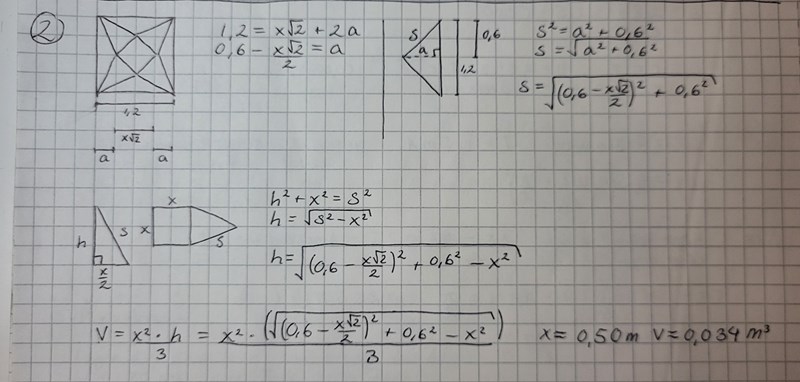 2
1,2 = x√2 + 2a
0,6 - x√2/2 = a
1,2
x√2
a a
s
a
0,6
1,2
s² = a² + 0,6²
s = √(a² + 0,6²)
s = √((0,6 - x√2/2)² + 0,6²)
h s
x/2
x
x
s
h² + x² = s²
h = √(s² - x²)
h = √((0,6 - x√2/2)² + 0,6² - x²)
V = x² · h/3 = x² · (√((0,6 - x√2/2)² + 0,6² - x²))/3 x = 0,50 m V = 0,034 m³